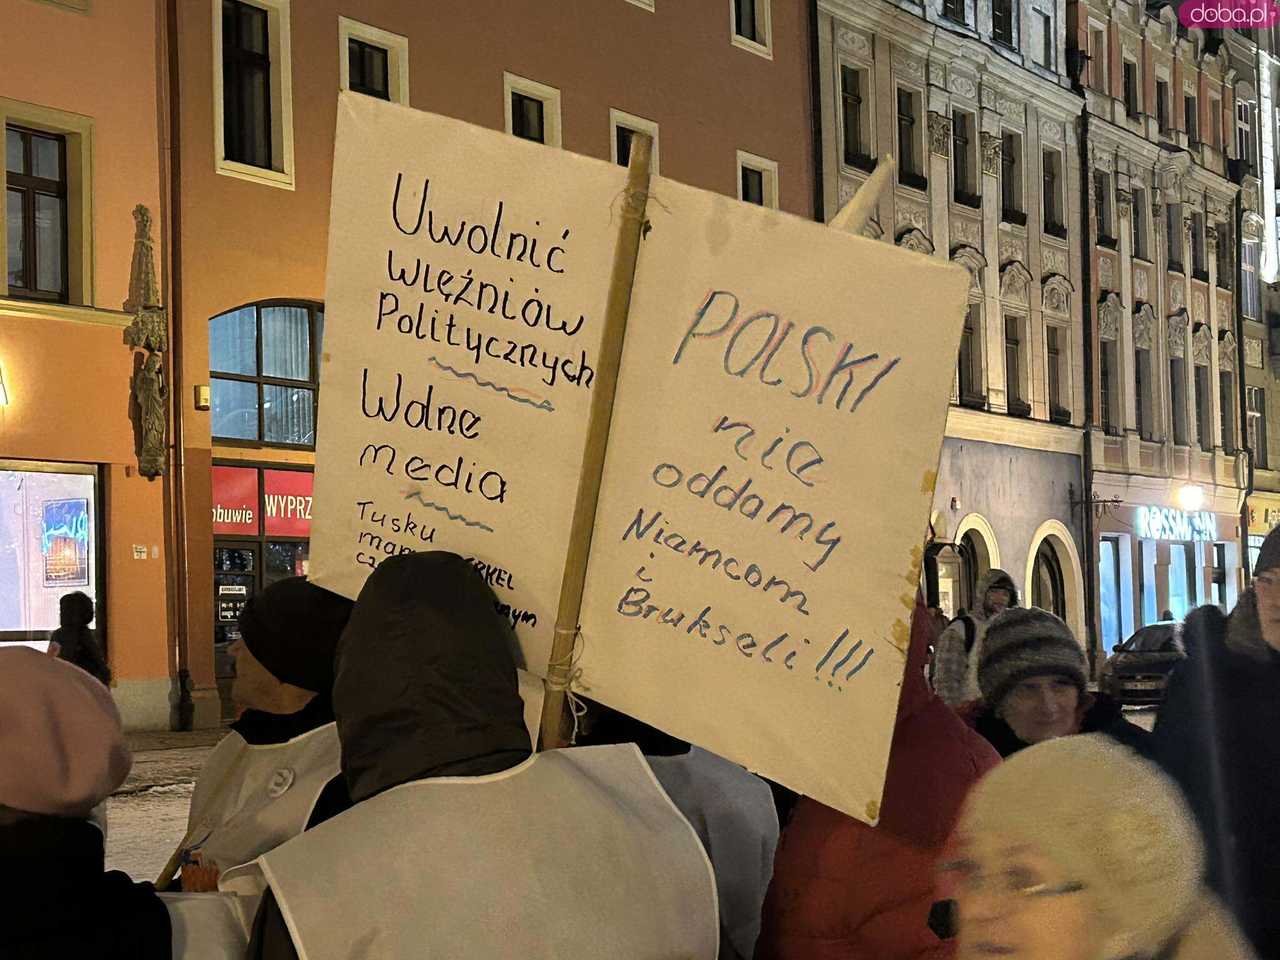 doba.pl
Uwolnić
więźniów
Politycznych
Wolne
media
Tusku
POLSKI
nie
oddamy
Niemcom
i
Brukseli!!!
obuwie
WYPRZ
ROSSMANN